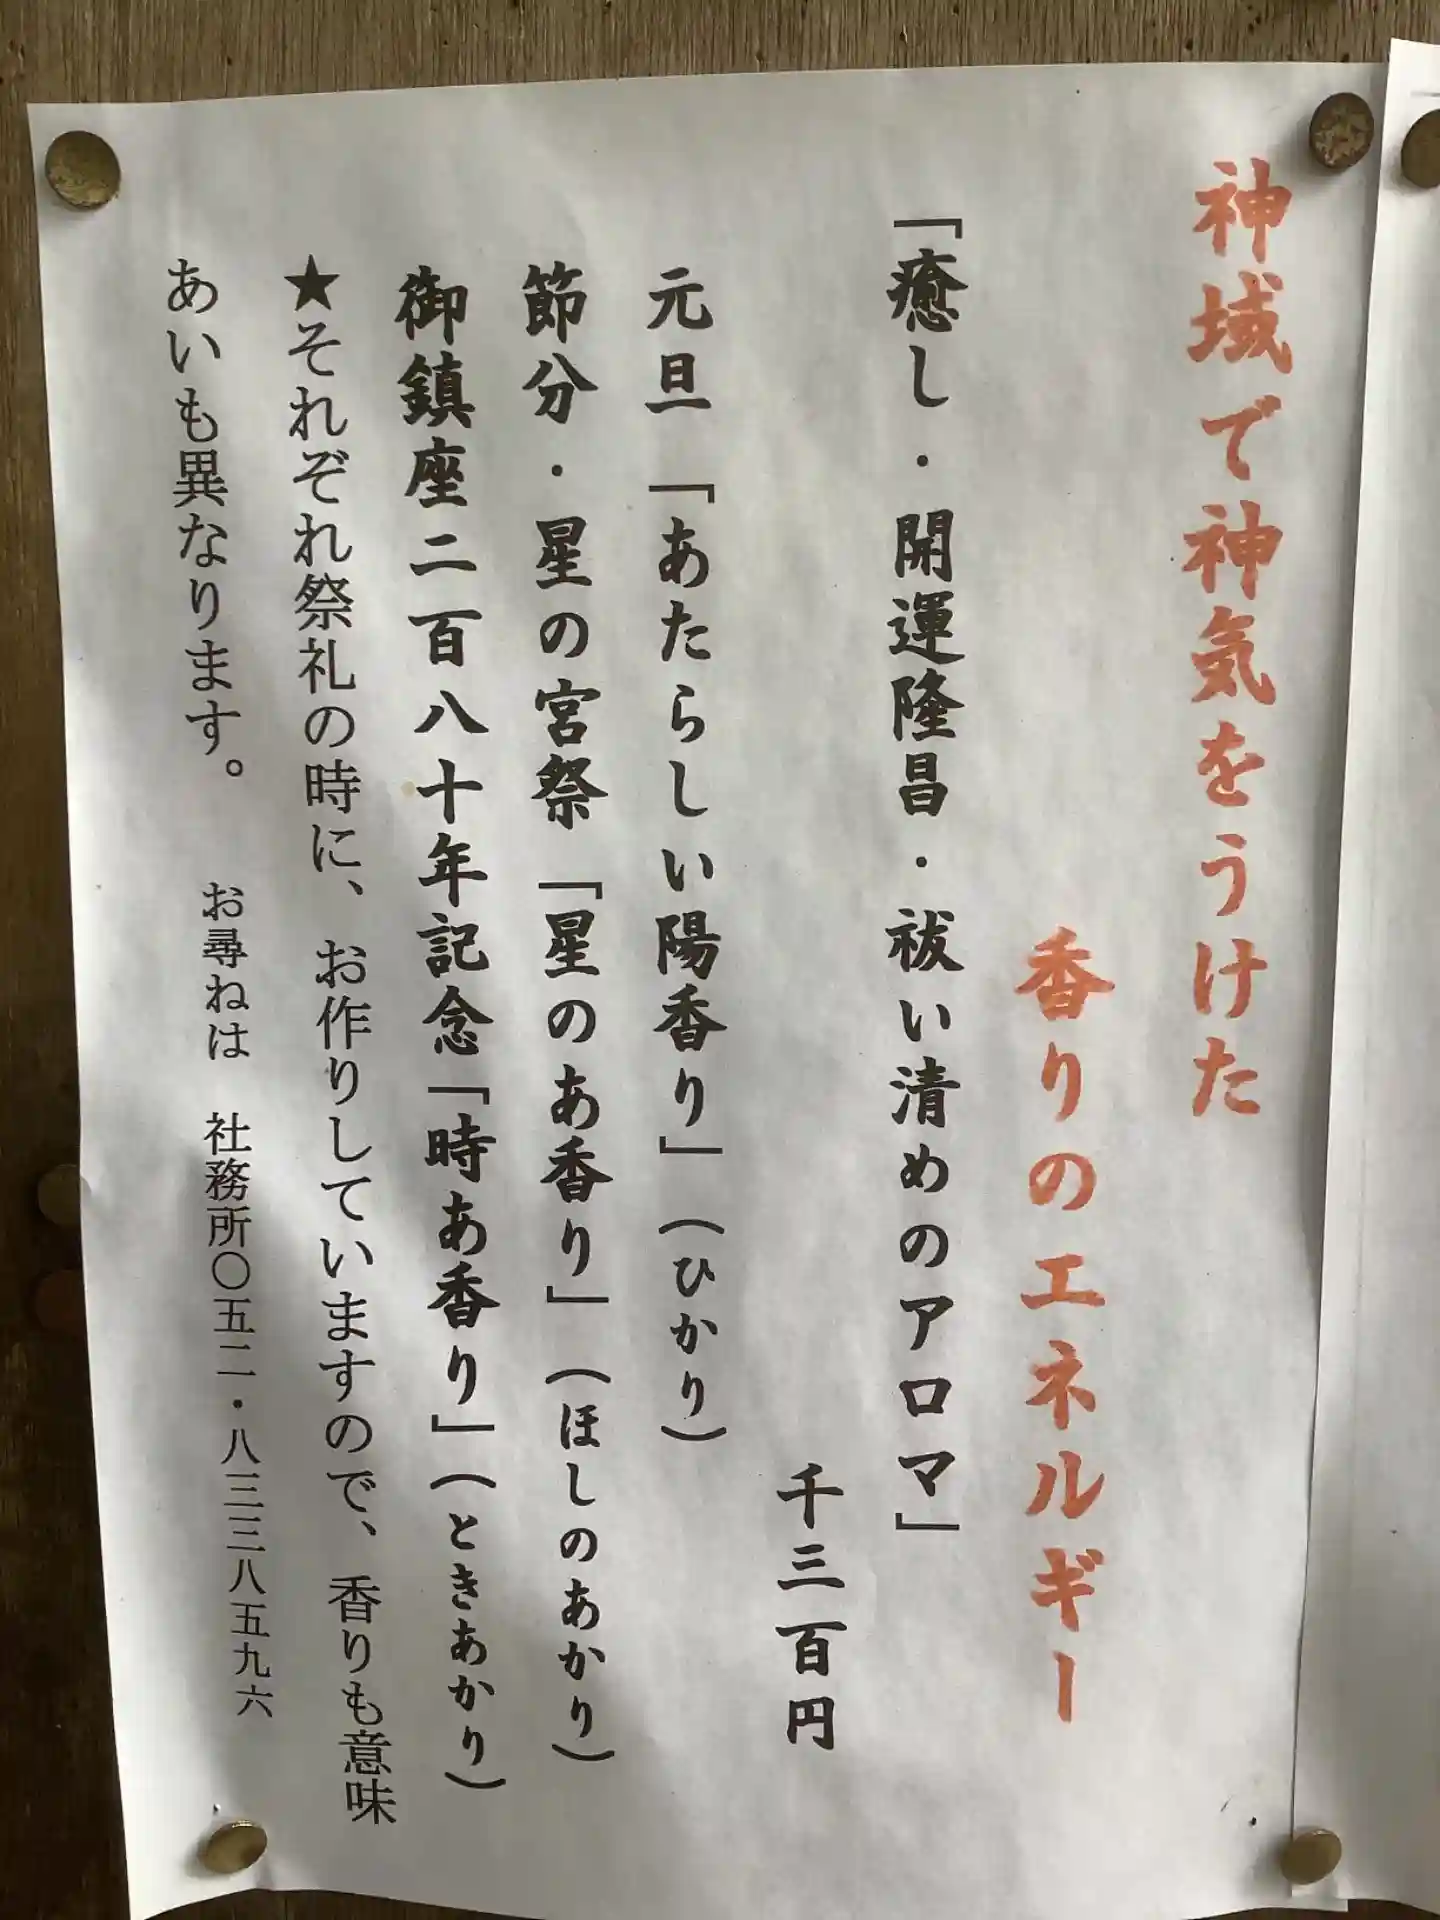 神域で神気をうけた
香りのエネルギー
「癒し・開運隆昌・祓い清めのアロマ」
千三百円
元旦「あたらしい陽香り」(ひかり)
節分・星の宮祭「星のあ香り」(ほしのあかり)
御鎮座二百八十年記念「時あ香り」(ときあかり)
★それぞれ祭礼の時に、お作りしていますので、香りも意味
あいも異なります。 お尋ねは 社務所〇五二・八三三八五九六